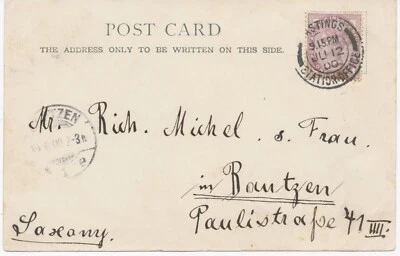 POST CARD
THE ADDRESS ONLY TO BE WRITTEN ON THIS SIDE.
HASTINGS
9.15PM
JU 12
00
STATION OFFICE
Mr. Rich. Michel s. Frau.
in Bautzen
Paulistraße 41 IIII.
Saxony.